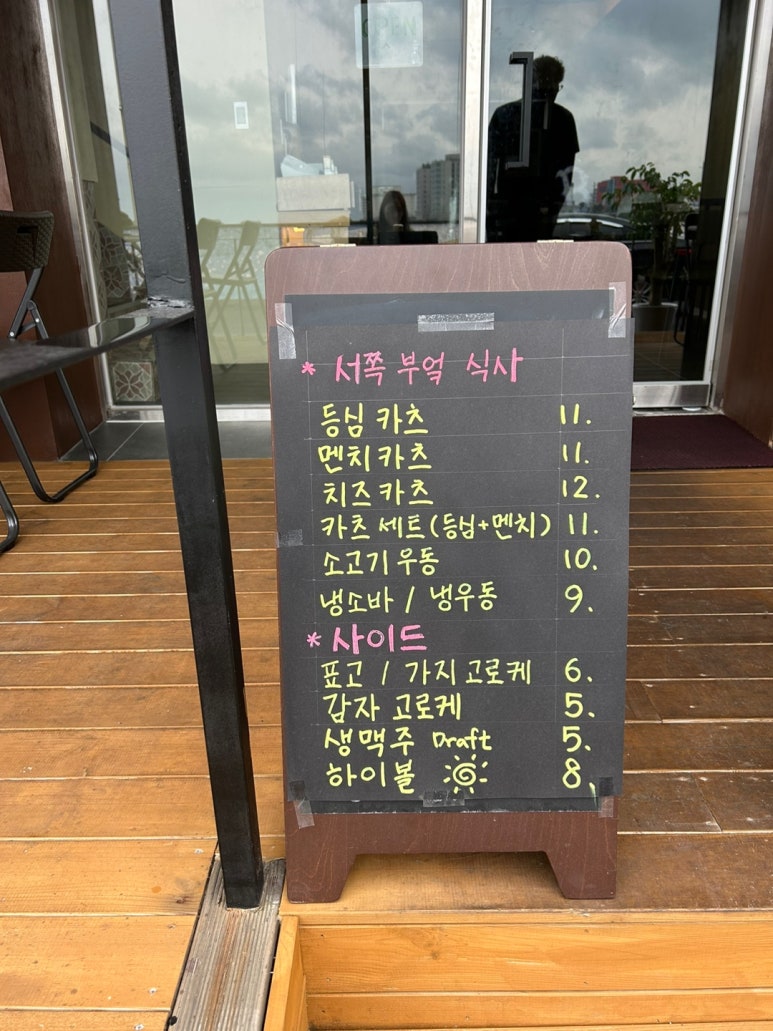 OPEN
* 서쪽 부엌 식사
등심 카츠 11.
멘치카츠 11.
치즈카츠 12.
카츠 세트(등심+멘치) 11.
소고기우동 10.
냉소바 / 냉우동 9.
* 사이드
표고 / 가지고로케 6.
감자 고로케 5.
생맥주 Draft 5.
하이볼 8.